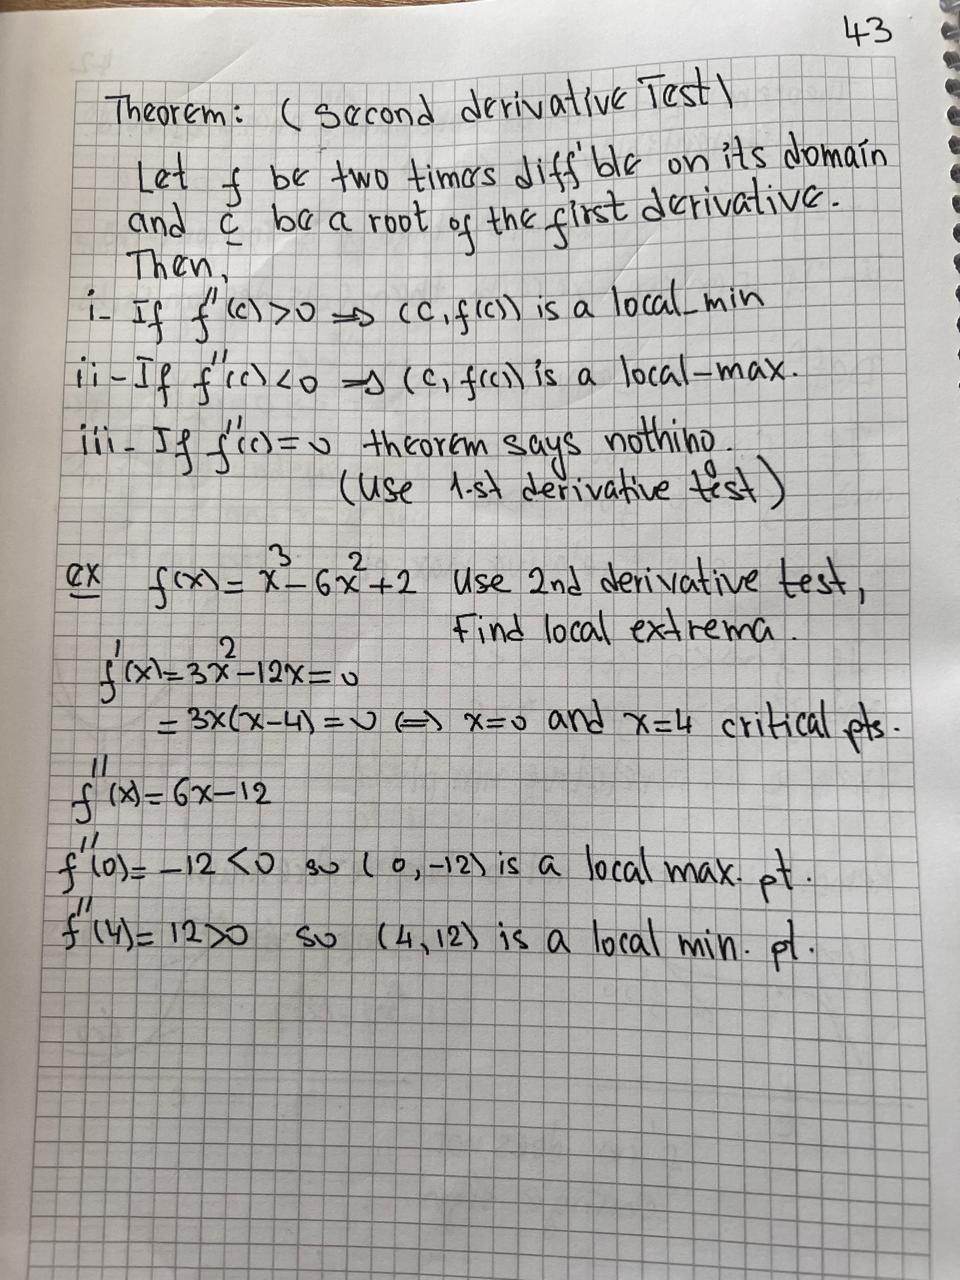 43
Theorem: (Second derivative Test)
Let f be two times diff'ble on its domain
and c be a root of the first derivative.
Then,
i- If f''(c)>0 ⇒ (c, f(c)) is a local_min
ii-If f''(c)<0 ⇒ (c, f(c)) is a local-max.
iii- If f''(c)=0 theorem says nothing.
(Use 1-st derivative test)
ex f(x)= x³-6x²+2 Use 2nd derivative test,
Find local extrema.
f'(x)=3x²-12x=0
= 3x(x-4)=0 ⇔ x=0 and x=4 critical pts.
f''(x)=6x-12
f''(0)= -12<0 so (0,-12) is a local max. pt.
f''(4)= 12>0 so (4,12) is a local min. pt.